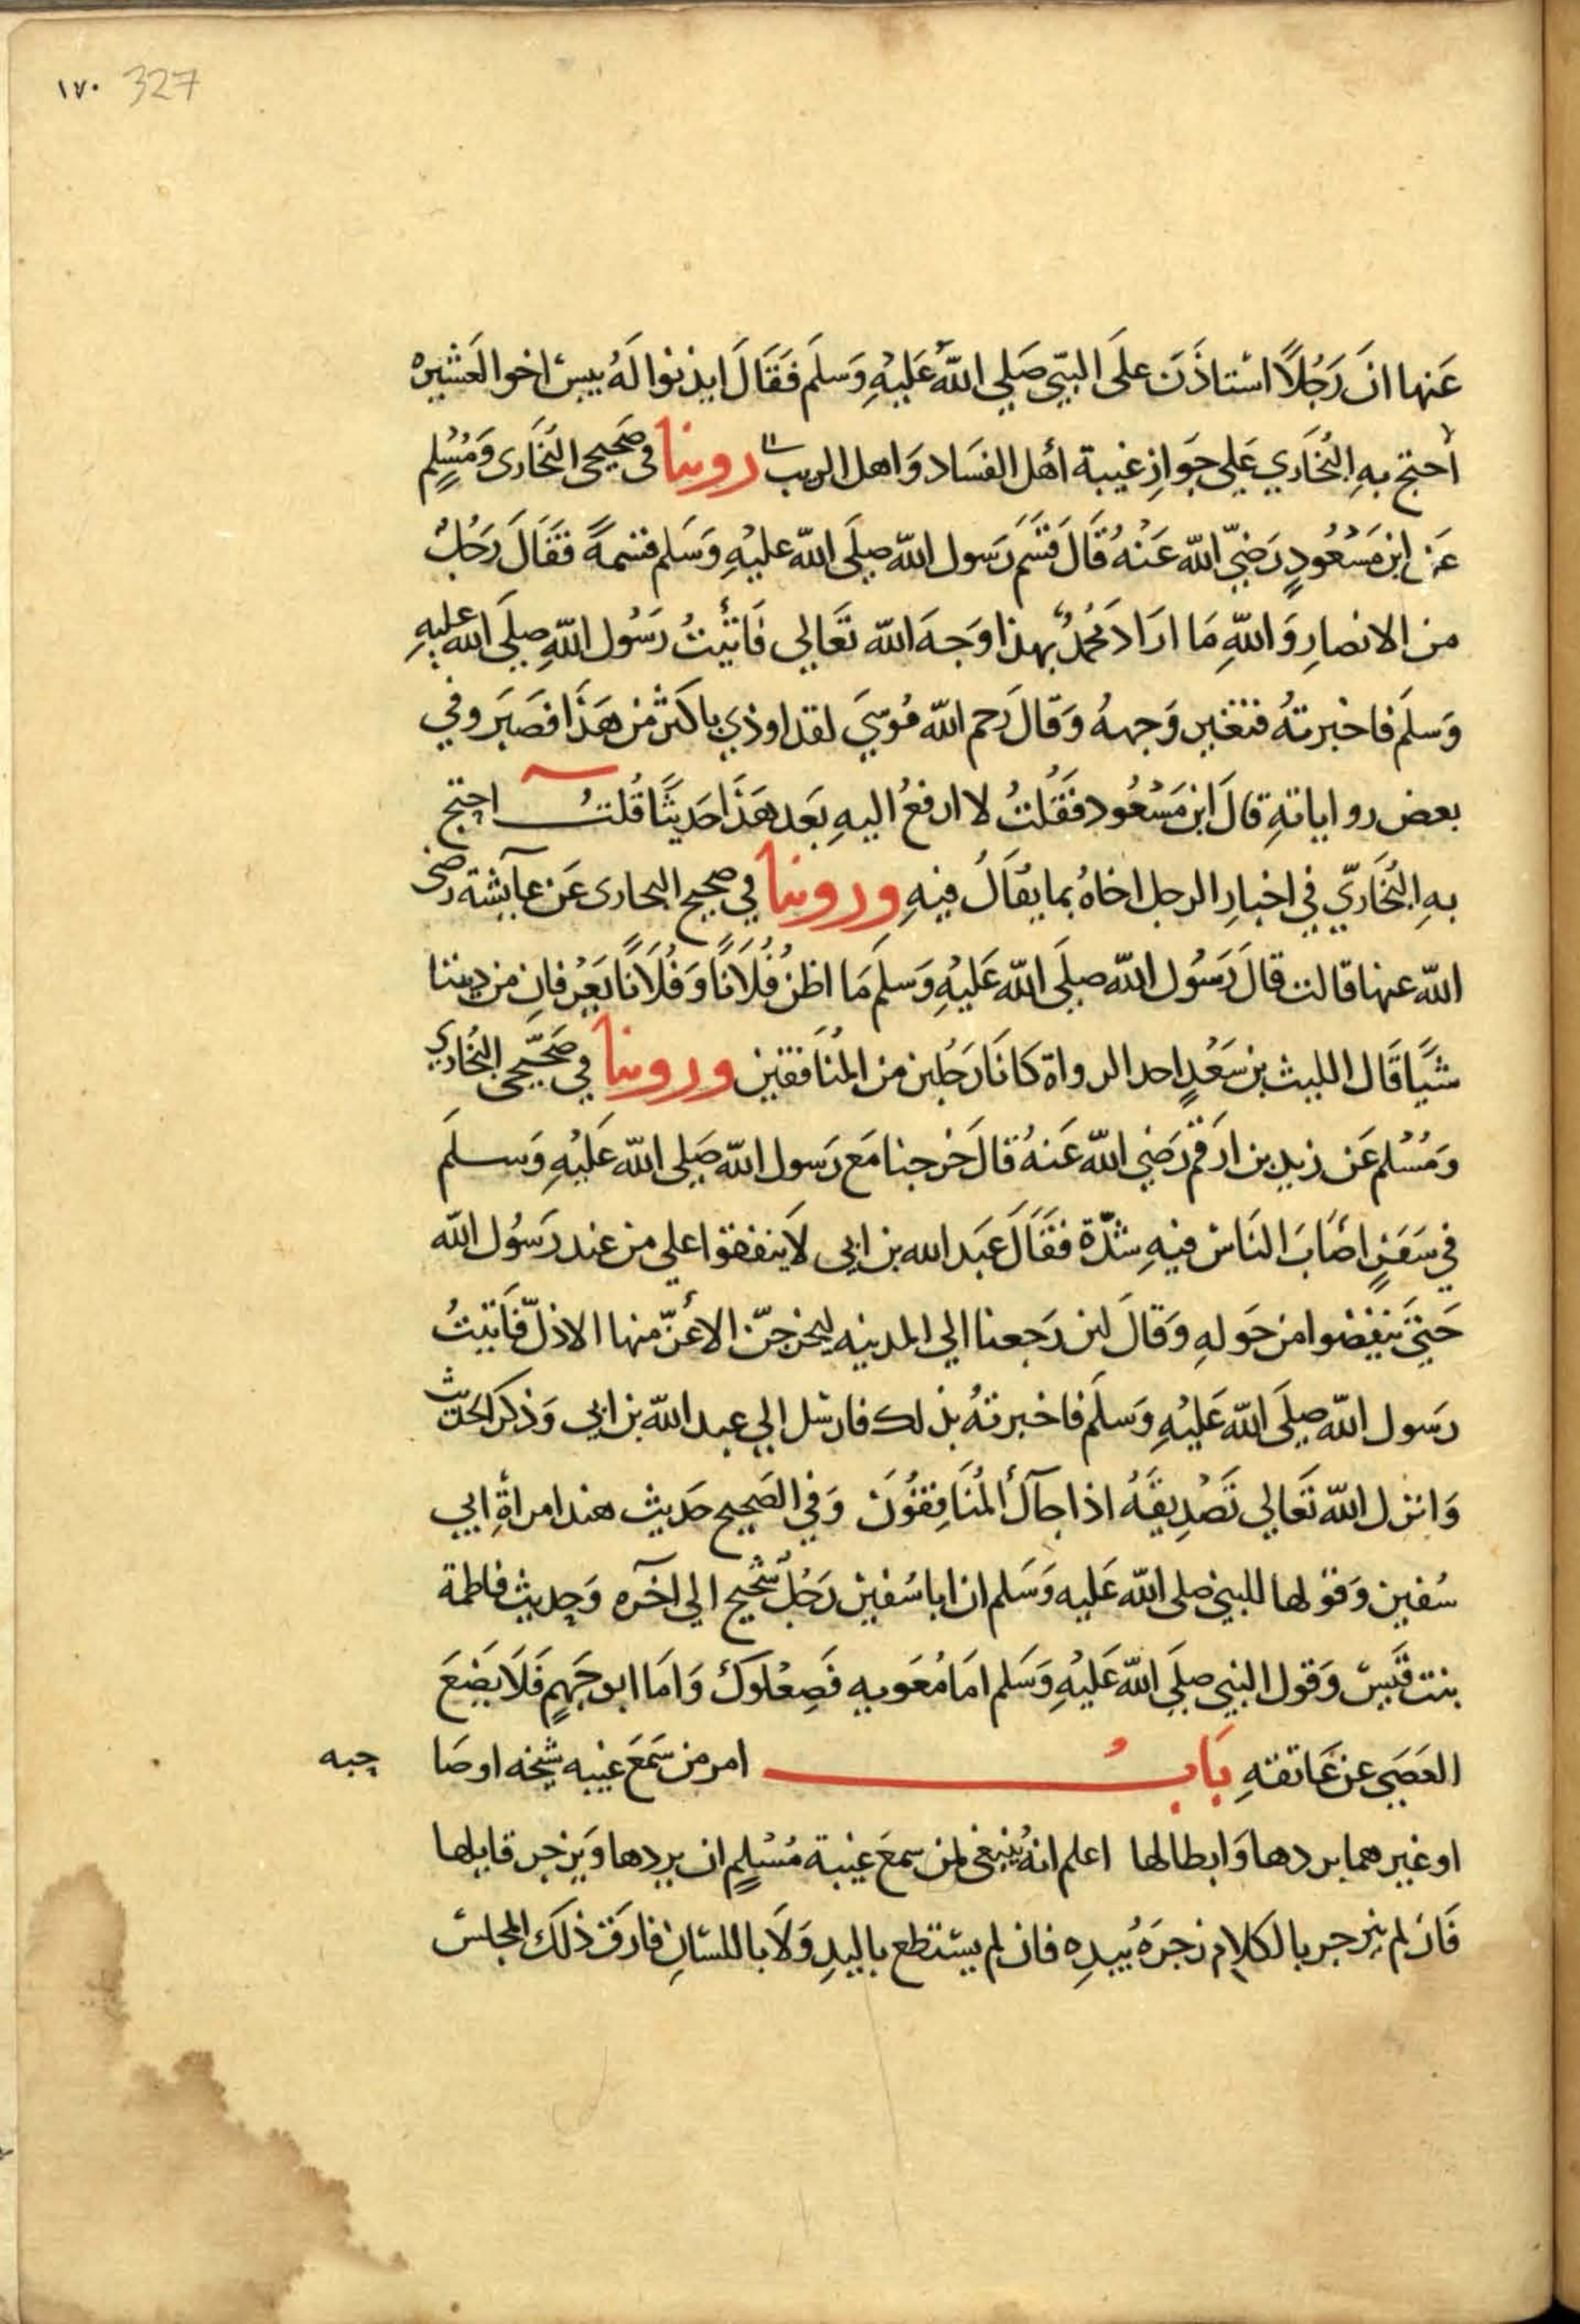 ١٧٠ 327
عَنها انَ رَجُلاً استاذَنَ علَى النبّي صَلي اللهُ عَليهِ وَسلَم فَقَالَ ايذنوا لَهُ بيسَ اخوا لعَشيره
احتج بهِ البُخَاري عَلي جَوازِ غيبة اهل الفسَاد وَاهل الريب روينا في صَحيحي البُخَارى وَمُسْلِمٍ
عَن ابن مَسْعُودٍ رَضيَ الله عَنْهُ قَالَ قَسَمَ رَسول الله صلَي الله عليهِ وَسَلم قسمةً فقَالَ رَجُلٌ
من الانصارِ وَاللهِ مَا ارَادَ مُحَمدٌ بهذا وَجهَ الله تعَالي فَاتَيتُ رَسُول اللهِ صلَي الله عليهِ
وَسلَم فاخبرتهُ فتغير وَجههُ وَقالَ رَحم الله مُوسَي لقد اوذي باكثر من هَذَا فصَبَر وفي
بعض رواياتهِ قالَ ابن مَسْعُود فَقُلتُ لا ارفعُ اليهِ بَعدهَذَا حَديثًا قُلتُ احتج
بهِ البُخَاريّ في اخبارِ الرجل اخاهُ بما يقَالُ فيهِ وروينا في صحيح البخارى عَن عآيشة رضى
الله عنها قالت قالَ رَسُول الله صلَي الله عَليهِ وَسلَم مَا اظنُ فُلَانًا وَفُلَانًا يَعْرفانِ من ديننا
شَيًا قَال الليث بن سَعْدٍ احد الرواة كانَا رَجُلين من المُنَافقين وروينا في صَحيحي البُخاري
وَمُسْلم عَن زيد بن ارقم رَضي الله عَنهُ قالَ خَرجنا مَع رَسول الله صَلي الله عَليهِ وَسلَم
في سَفَرٍ اصَابَ النَاسَ فيهِ شدّة فقَالَ عَبَد الله بن ابى لَا ينفقوا علي من عند رَسُول الله
حَتيَ يَنفضوا من حَولهِ وَقالَ لين رَجعنا الي المدينه ليخرجنّ الاعَزّ منها الاذلّ فَاتيتُ
رَسول الله صلَي الله عَليهِ وَسلَم فاخبرتهُ بذلك فارسَل الي عبد الله بن ابي وَذكر الحَديث
وَانزل الله تعَالي تَصْدِيقَهُ اذا جآكَ المُنَافِقوُنَ وَفي الصَحيح حَديث هند امراةِ ابي
سُفين وَقولها للنبي صلى الله عَليه وَسَلم ان ابا سُفين رَجُلٌ شحيح الي اخَره وَحديث فاطمة
بنت قَيس وَقول النبي صلَي الله عَليهِ وَسَلم امَا مُعَويه فَصِعْلوكٌ وَامَا ابو جَهمٍ فَلَا يَضَعَ
العَصَي عن عَاتقهِ بَابُ امر من سَمعَ غيبه شيخه اوصَا حبه
او غيرهما بردها وَابطالها اعلم انهُ يَنبغى لمن سمعَ غيبة مُسْلمٍ ان يردها وَيزجر قايلها
فَان لم ينزجر بالكلام زجرَهُ بيدِه فان لم يستطع باليدِ وَلَا باللسَانِ فارَق ذلكَ المجلسَ